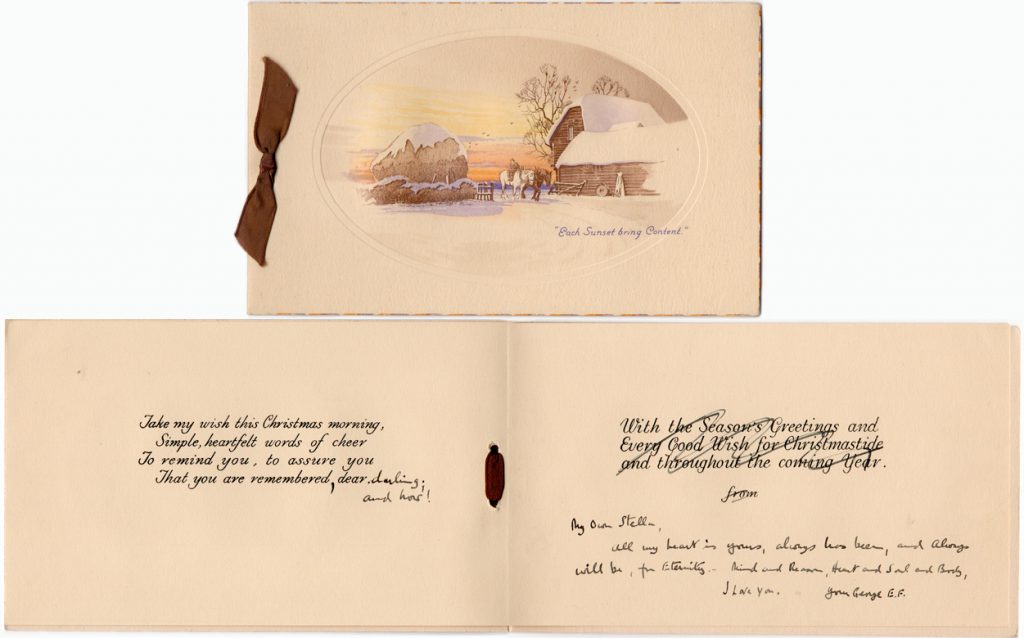 "Each Sunset bring Content."
Take my wish this Christmas morning,
Simple, heartfelt words of cheer
To remind you, to assure you
That you are remembered, dear. darling;
and how!
With the Season's Greetings and
Every Good Wish for Christmastide
and throughout the coming Year.
from
My Own Stella,
All my heart is yours, always has been, and Always
will be, for Eternity. – Mind and Reason, Heart and Soul and Body,
I Love You. Your George E.F.